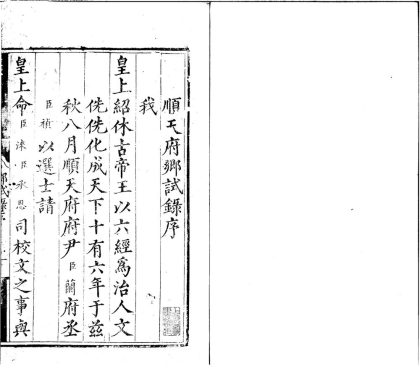 順天府鄉試錄序
我
皇上紹休古帝王以六經爲治人文
侁侁化成天下十有六年于兹
秋八月順天府府尹臣蘭府丞
臣禎以選士請
皇上命臣涞臣承恩司校文之事與